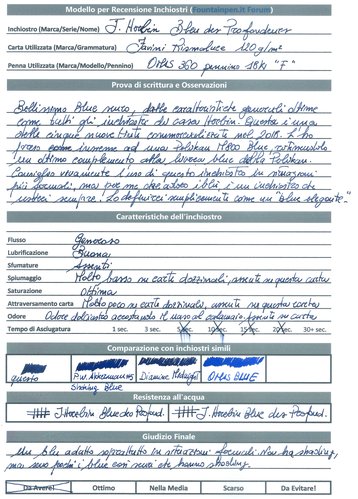 Modello per Recensione Inchiostri (Fountainpen.it Forum)
Inchiostro (Marca/Serie/Nome) J. Herbin Bleu des Profondeurs
Carta Utilizzata (Marca/Grammatura) Favini Rismaluce 120g/m²
Penna Utilizzata (Marca/Modello/Pennino) Omas 360 pennino 18Kt "F"
Prova di scrittura e Osservazioni
Bellissimo Blue nero, dalle caratteristiche generali ottime
come tutti gli inchiostri di casa Herbin. Questa è una
delle cinque nuove tinte commercializzate nel 2018. L'ho
preso come insieme ad una Pelikan M800 Blue, ritenendolo
un ottimo complemento alla livrea blue della Pelikan.
Consiglio vivamente l'uso di questo inchiostro in situazioni
più formali, ma per me che adoro i blu, è un inchiostro che
userei sempre. Lo definirei semplicemente come un "blue elegante".
Caratteristiche dell'inchiostro
Flusso Generoso
Lubrificazione Buona
Sfumature Assenti
Spiumaggio Molto basso su carte dozzinali, assente su questa carta
Saturazione Ottima
Attraversamento carta Molto poco su carte dozzinali, assente su questa carta
Odore Odore dolciastro accostando il naso al calamaio
Tempo di Asciugatura 1 sec. 3 sec. 5 sec. 10 sec. 15 sec. 20 sec. 30+ sec.
Comparazione con inchiostri simili
questo P.W. Akkerman Diamine Midnight Omas BLUE
Blue
Resistenza all'acqua
J. Herbin Bleu des Profond. J. Herbin Bleu des Profond.
Giudizio Finale
Un blu adatto soprattutto in situazioni formali. Non ha shading,
ma sono pochi i blue così scuri che hanno shading.
Da Avere! Ottimo Nella Media Scarso Da Evitare!